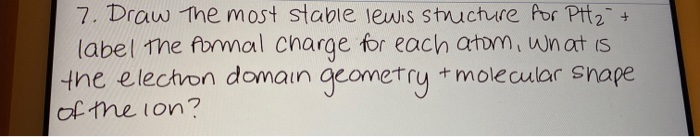 7. Draw The most stable lewis structure for PH₂⁻ +
label the formal charge for each atom. What is
the electron domain geometry + molecular shape
of the ion?